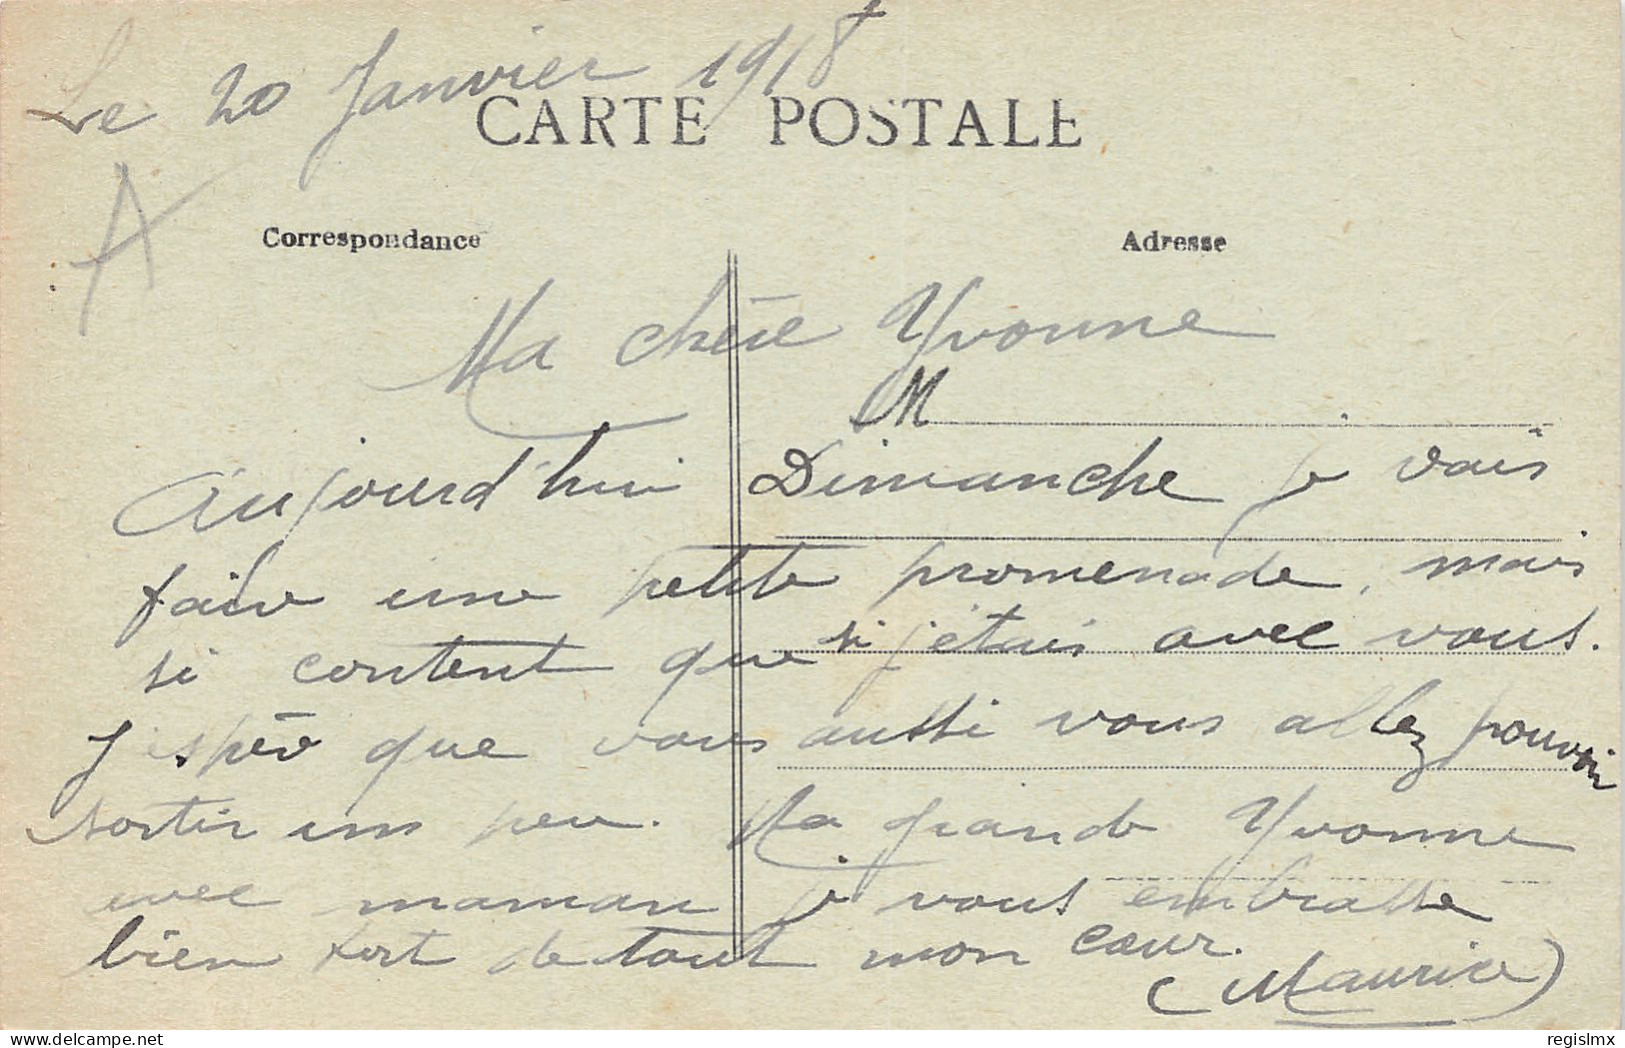 Le 20 Janvier 1918
CARTE POSTALE
A
Correspondance
Adresse
Ma chère Yvonne
M
Aujourd'hui Dimanche je vais
faire une petite promenade, mais
si content que si j'étais avec vous.
J'espère que vous aussi vous allez pouvoir
sortir un peu. Ma grande Yvonne
avec maman je vous embrasse
bien fort de tout mon cœur.
(Maurice)
regislmx